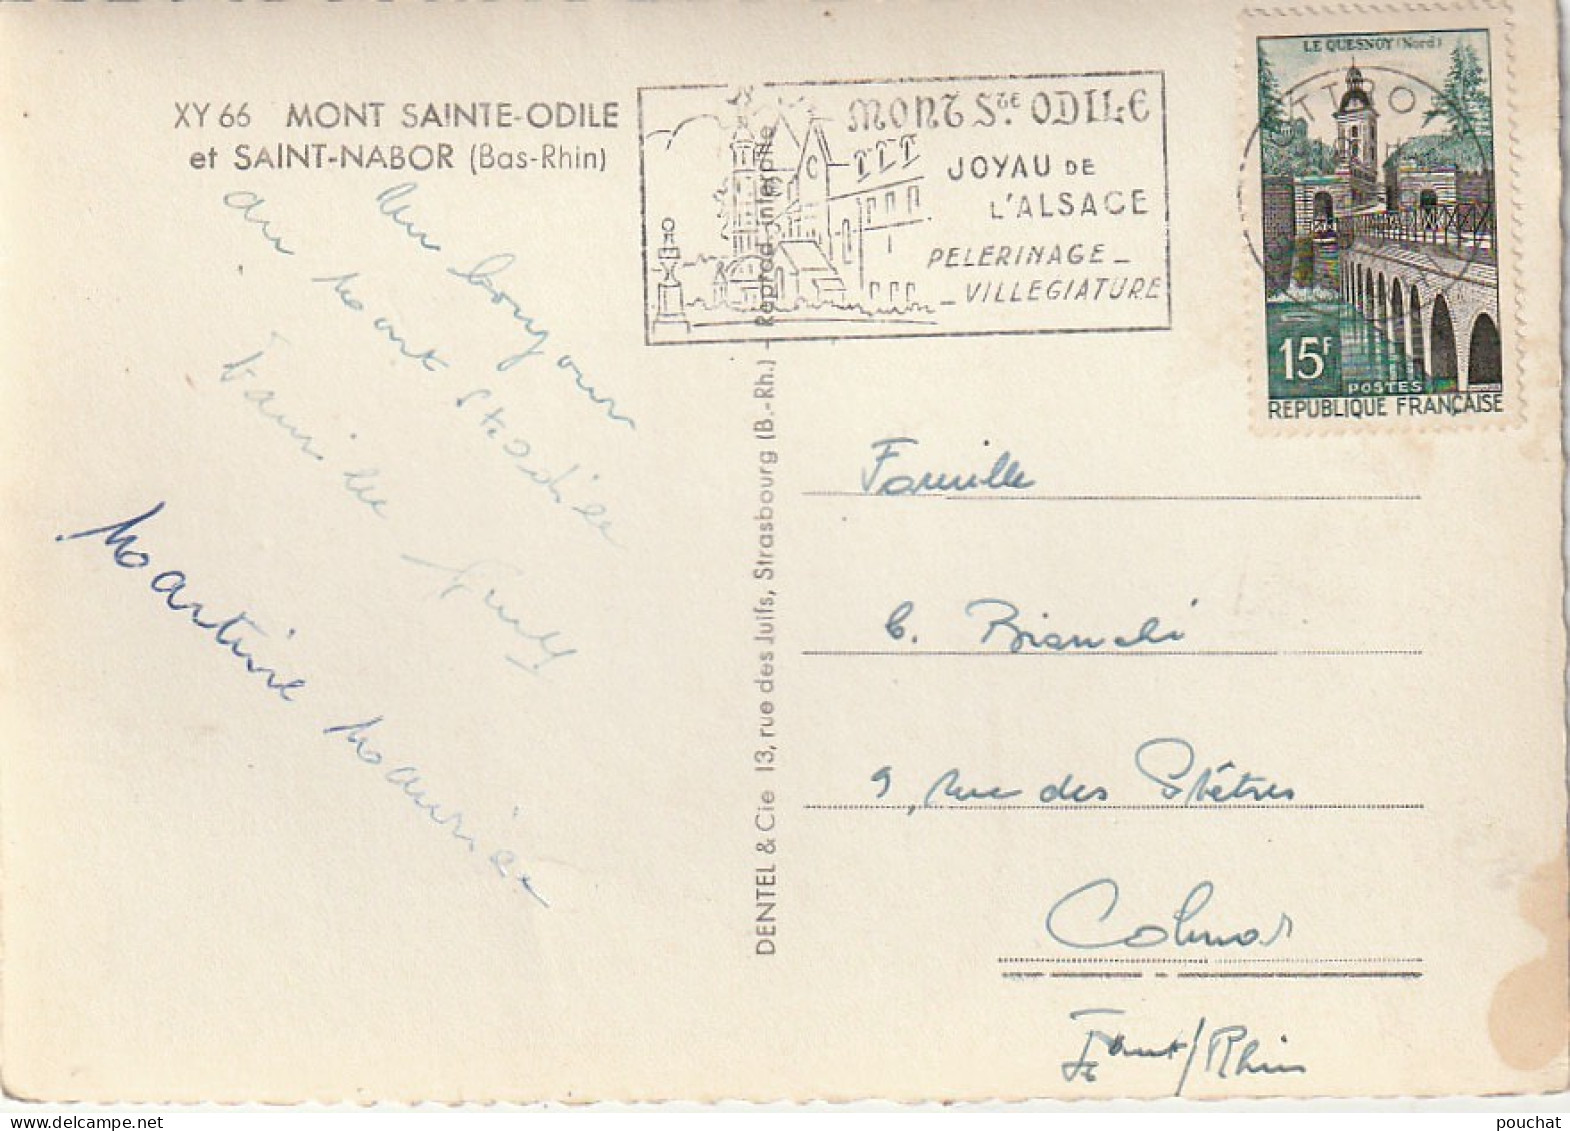 XY 66 MONT SAINTE-ODILE
et SAINT-NABOR (Bas-Rhin)
Un bonjour
du Mont Ste Odile
Famille
Martine Maurice
DENTEL & Cie 13, rue des Juifs, Strasbourg (B.-Rh.) - Reprod. interdite
MONT Ste. ODILE
JOYAU DE
L'ALSACE
PELERINAGE -
- VILLEGIATURE
LE QUESNOY (Nord)
OTTRO
15F
POSTES
REPUBLIQUE FRANÇAISE
Famille
C. Bianchi
9, Rue des Prêtres
Colmar
Haut/Rhin
pouchat